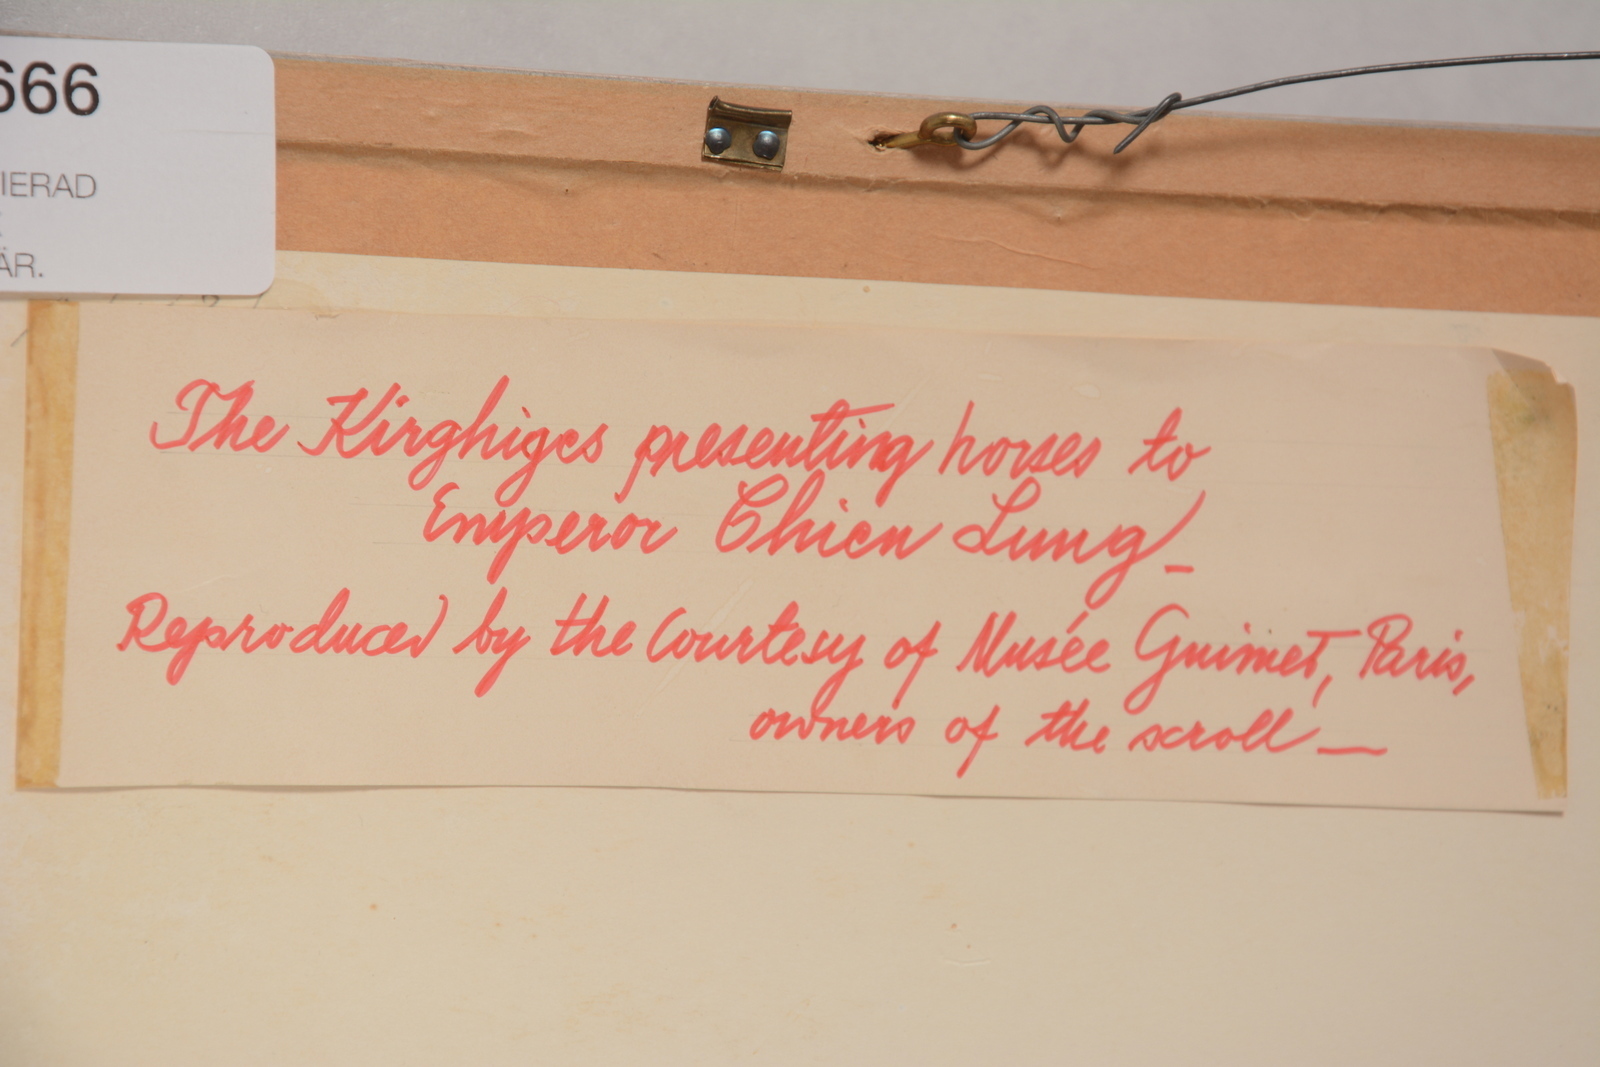 666
IERAD
ÄR.
The Kirghiges presenting horses to
Emperor Chien Lung_
Reproduced by the Courtesy of Musée Guimet, Paris,
owners of the scroll —